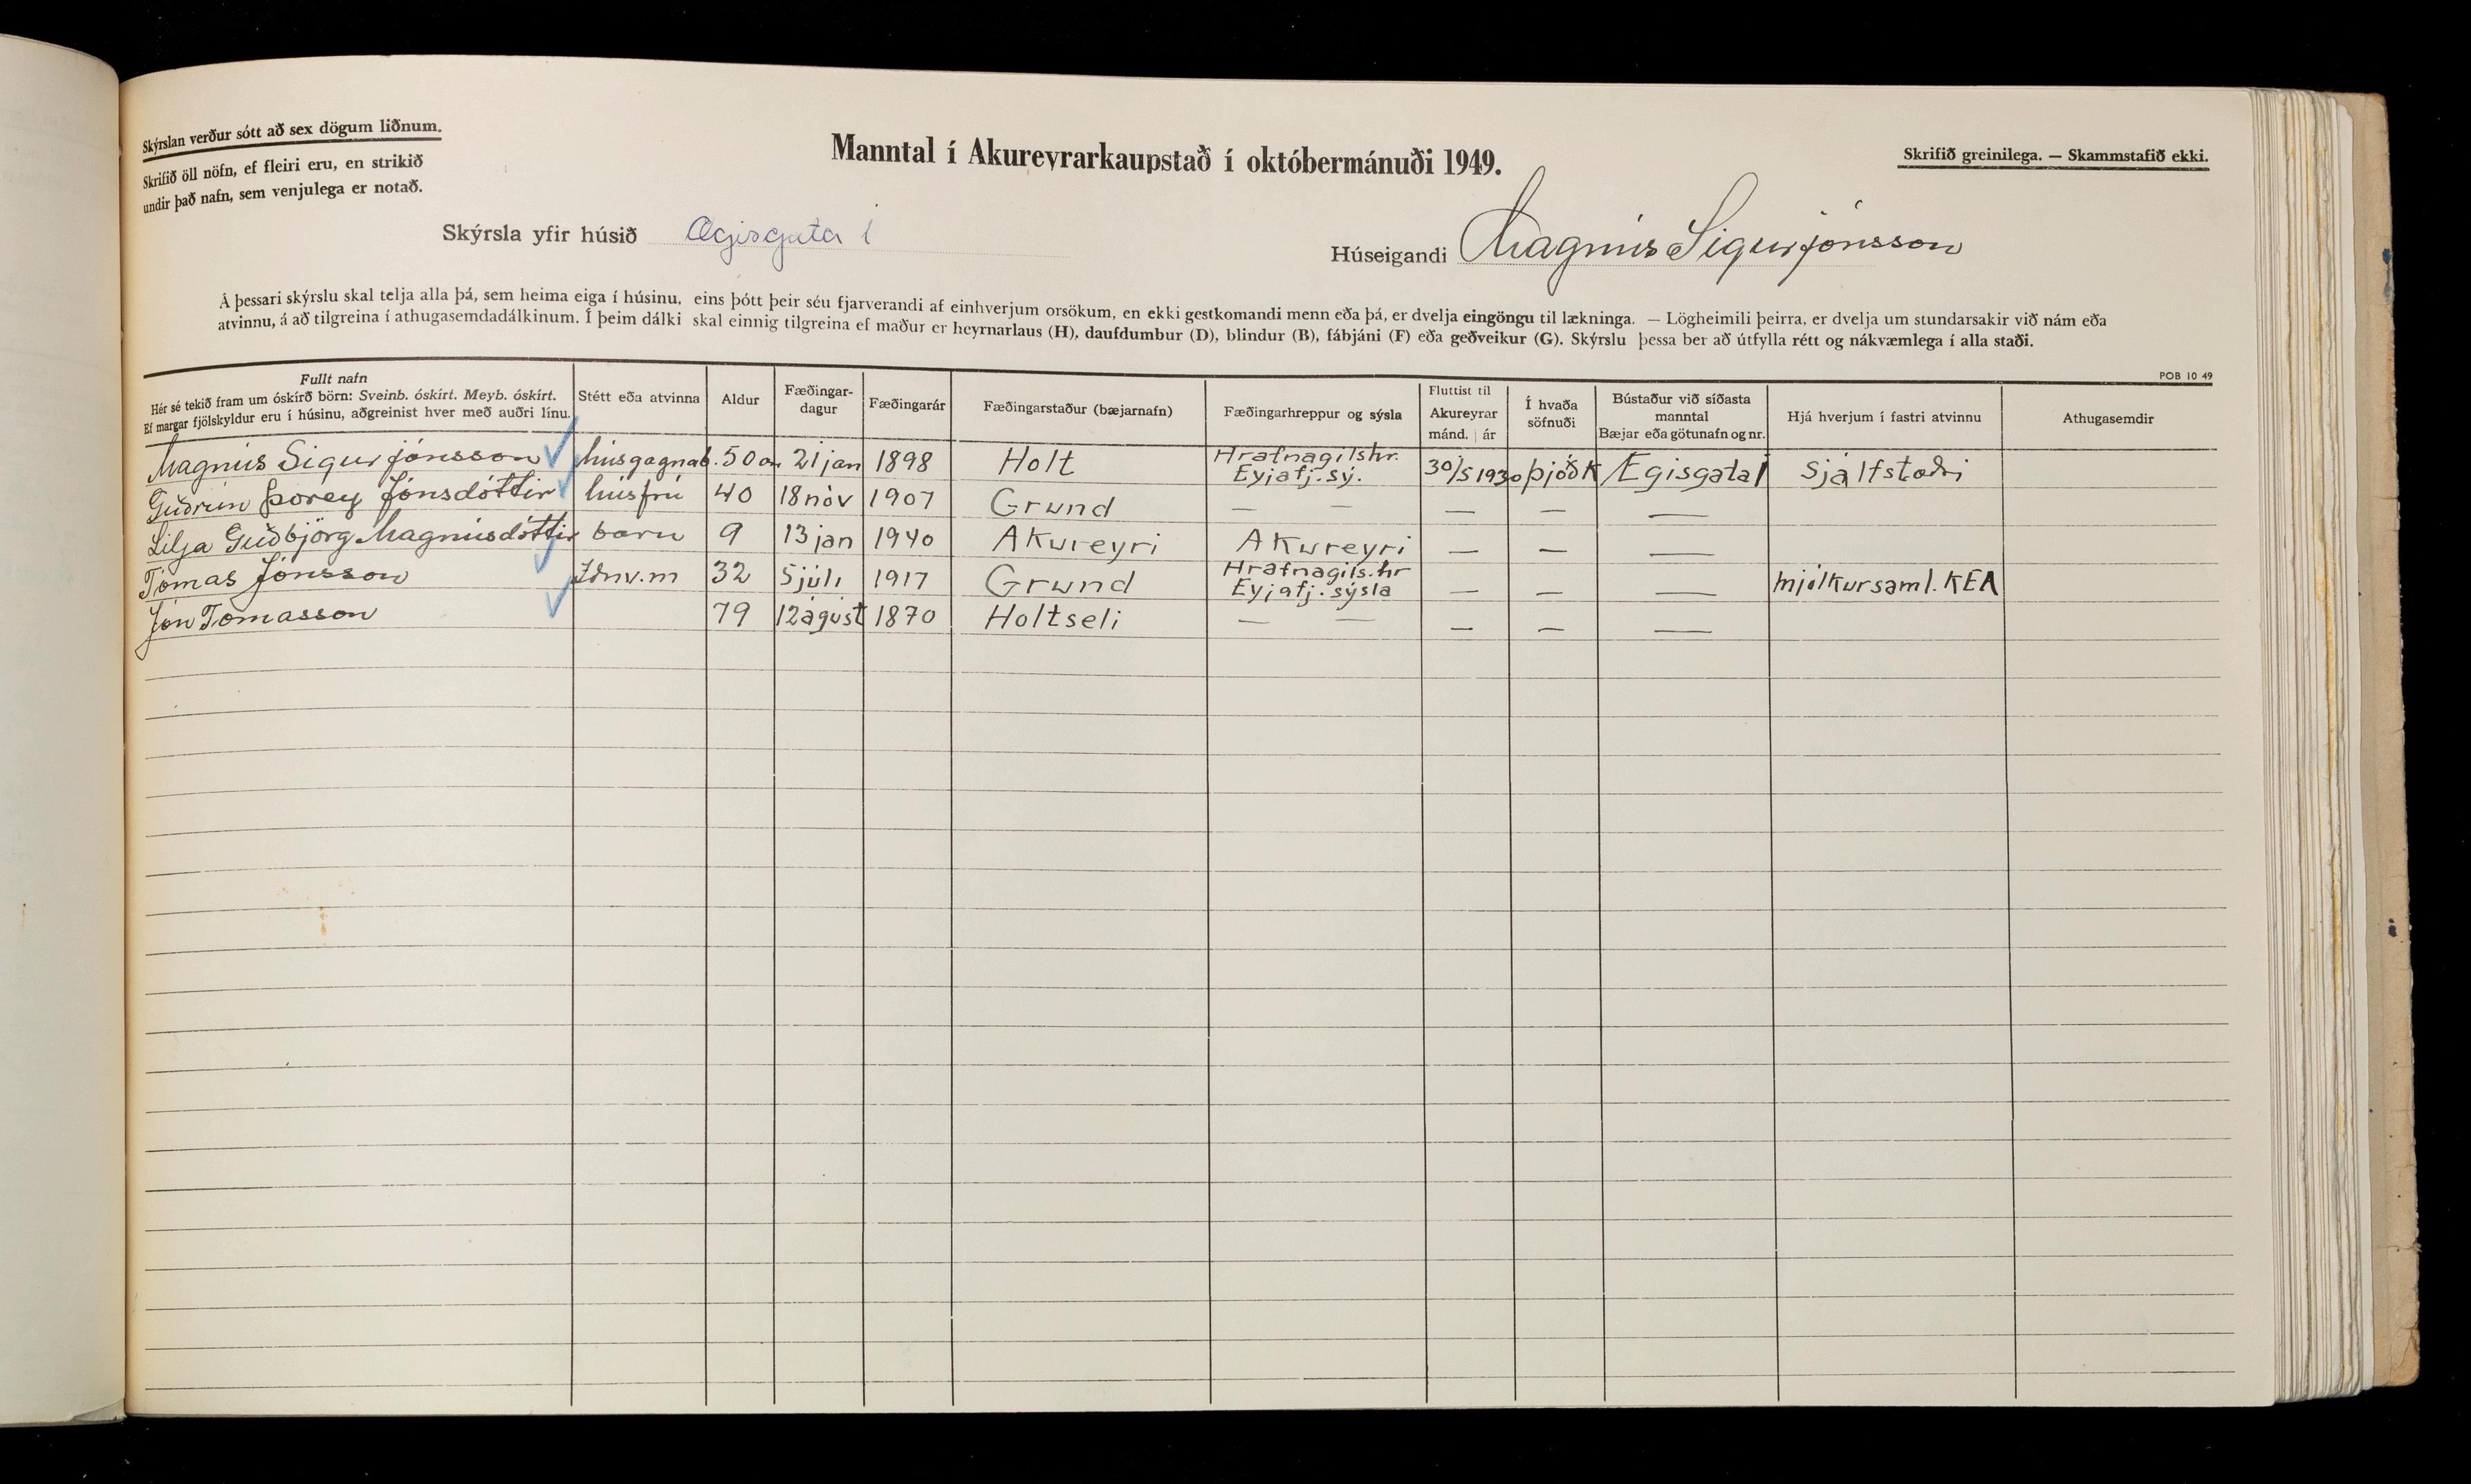 Skýrslan verður sótt að sex dögum liðnum.
Skrifið öll nöfn, ef fleiri eru, en strikið
undir það nafn, sem venjulega er notað.
Manntal í Akureyrarkaupstað í októbermánuði 1949.
Skrifið greinilega. — Skammstafið ekki.
Skýrsla yfir húsið Ægisgata 1
Húseigandi Magnús Sigurjónsson
Á þessari skýrslu skal telja alla þá, sem heima eiga í húsinu, eins þótt þeir séu fjarverandi af einhverjum orsökum, en ekki gestkomandi menn eða þá, er dvelja eingöngu til lækninga. — Lögheimili þeirra, er dvelja um stundarsakir við nám eða
atvinnu, á að tilgreina í athugasemdadálkinum. Í þeim dálki skal einnig tilgreina ef maður er heyrnarlaus (H), daufdumbur (D), blindur (B), fábjáni (F) eða geðveikur (G). Skýrslu þessa ber að útfylla rétt og nákvæmlega í alla staði.
POB 10 49
Fullt nafn
Hér sé tekið fram um óskírð börn: Sveinb. óskírt. Meyb. óskírt.
Ef margar fjölskyldur eru í húsinu, aðgreinist hver með auðri línu.
Stétt eða atvinna
Aldur
Fæðingar-
dagur
Fæðingarár
Fæðingarstaður (bæjarnafn)
Fæðingarhreppur og sýsla
Fluttist til
Akureyrar
mánd. ár
Í hvaða
söfnuði
Bústaður við síðasta
manntal
Bæjar eða götunafn og nr.
Hjá hverjum í fastri atvinnu
Athugasemdir
Magnús Sigurjónsson húsgagnab. 50 ára 21 jan 1898 Holt Hrafnagilshr. Eyjafj.sý. 30/5 1930 þjóðk Ægisgata 1 sjálfstæðri
Guðrún Þórey Jónsdóttir húsfrú 40 18 nóv 1907 Grund — — — — —
Lilja Guðbjörg Magnúsdóttir barn 9 13 jan 1940 Akureyri Akureyri — — —
Tómas Jónsson Iðnv.m 32 5 júlí 1917 Grund Hrafnagils.hr Eyjafj.sýsla — — — mjólkursaml. KEA
Jón Tómasson 79 12 ágúst 1870 Holtseli — — — — —